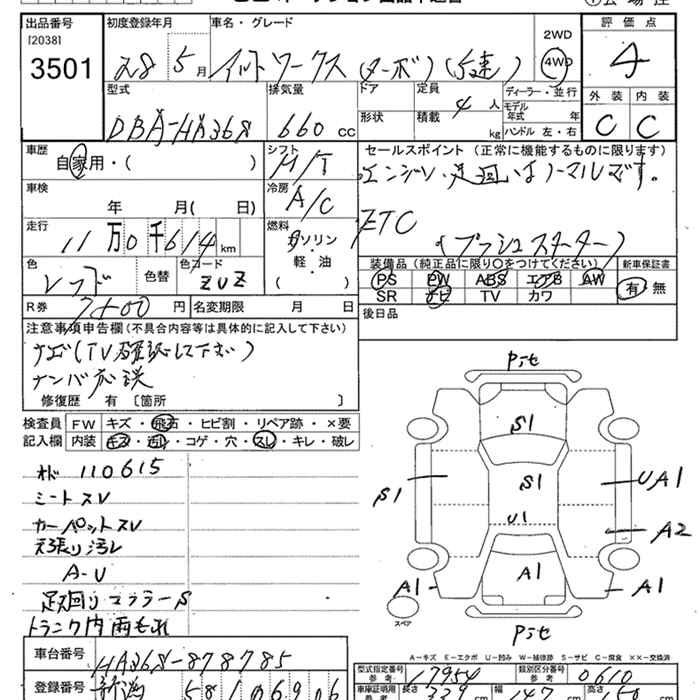 出品番号 初度登録年月 車名・グレード 評価点
[2038] 2WD
3501 28 5月 アルトワークス (ターボ)(5速) 4WD 4
型式 排気量 ドア 定員 ディーラー・並行 外装 内装
DBA-HA36S 660cc 4人 モデル年式 年
形状 積載 kg ハンドル 左・右 C C
車歴 シフト セールスポイント (正常に機能するものに限ります)
自家用・( ) M/T エンジン、足回りはノーマルです。
車検 冷房
年 月( 日) A/C ETC
走行 燃料 (プッシュスターター)
11万0千614km ガソリン・軽・油 ( )
装備品(純正品に限り○をつけてください) 新車保証書
色 色替 色コード PS PW ABS エアB AW 有・無
レッド ZUZ SR ナビ TV カワ
R券 円 名変期限 月 日 後日品
注意事項申告欄(不具合内容等は具体的に記入して下さい)
ナビ(TV確認して下さい)
修復歴 有 〔箇所 〕
検査員記入欄 FW キズ・飛石・ヒビ割・リペア跡・×要
内装 キズ・汚レ・コゲ・穴・スレ・キレ・破レ
110615
シートスV
カーペットスV
天張り汚レ
A-U
足回りマフラーS
トランク内雨もれ
S1
S1
S1
UA1
U1
A2
A1
A1
A1
スペア
A−キズ E−エクボ U−凹み W−補修跡 S−サビ C−腐食 ××−交換済
車台番号 HA36S-878785
型式指定番号 参考 17954 類別区分番号 参考 0610
登録番号 新潟 581
車庫証明用 参考 長さ 339cm 幅 147cm 高さ